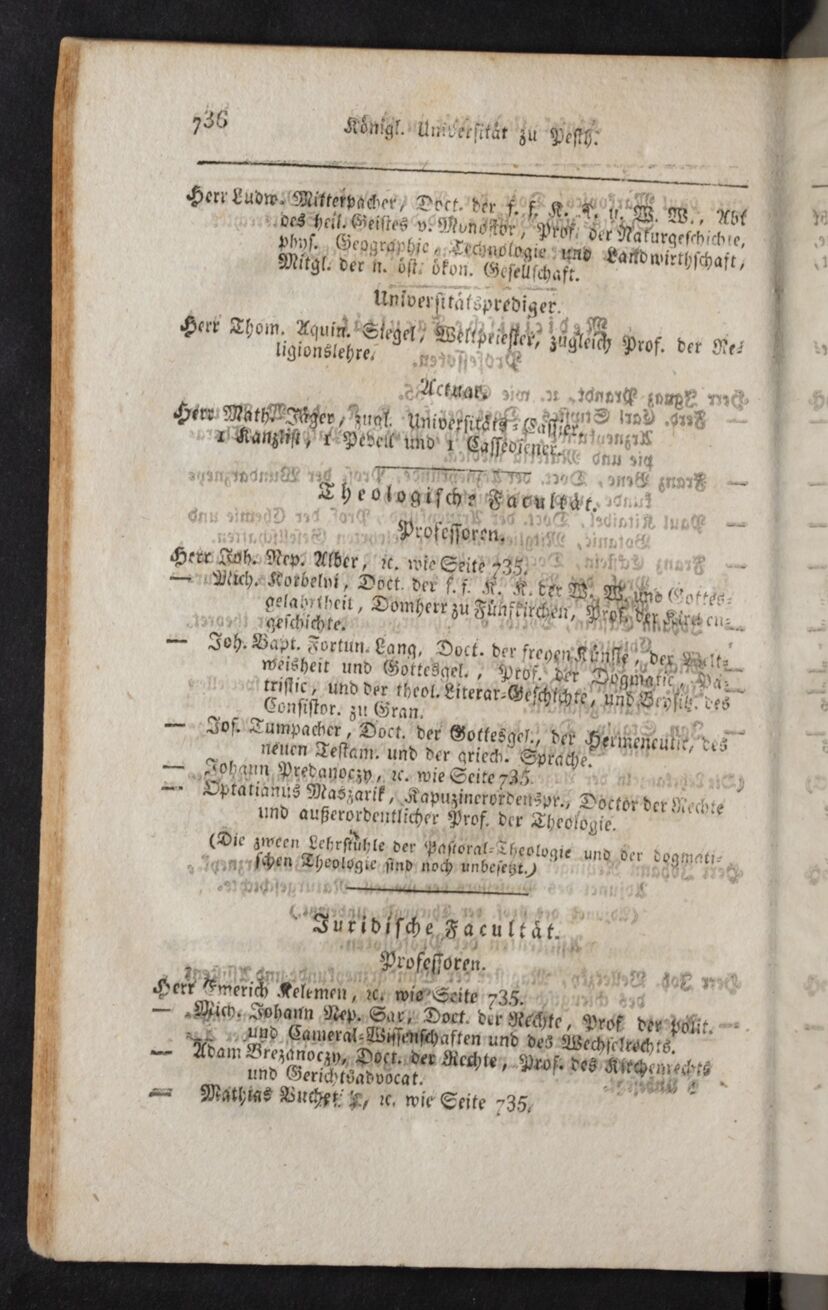 736 Königl. Universität zu Pesth.
Herr Ludw. Mitterpacher, Doct. der f. f. K. K. u. W. W., Abt
des heil. Geistes v. Monostor, Prof. der Naturgeschichte,
phys. Geographie, Technologie und Landwirthschaft,
Mitgl. der n. öst. ökon. Gesellschaft.
Universitätsprediger.
Herr Thom. Aquin. Siegel, Weltpriester, zugleich Prof. der Re-
ligionslehre.
Actuar.
Herr Math. Jäger, zugl. Universitäts-Cassier.
1 Kanzlist, 1 Pedell und 1 Cassediener.
Theologische Facultät.
Professoren.
Herr Joh. Nep. Alber, ꝛc. wie Seite 735.
— Mich. Korbelyi, Doct. der f. f. K. K. der W. W. und Gottes-
gelahrtheit, Domherr zu Fünfkirchen, Prof. der Kirchen-
geschichte.
— Joh. Bapt. Fortun. Lang, Doct. der freyen Künste, der Welt-
weisheit und Gottesgel., Prof. der Dogmatic, Pa-
tristic, und der theol. Literar-Geschichte, und Beysitz. des
Consistor. zu Gran.
— Jos. Tumpacher, Doct. der Gottesgel., der Hermeneutic, des
neuen Testam. und der griech. Sprache.
— Johann Predanoczy, ꝛc. wie Seite 735.
— Optatianus Maszarik, Kapuzinerordenspr., Doctor der Rechte
und außerordentlicher Prof. der Theologie.
(Die zween Lehrstühle der Pastoral-Theologie und der dogmati-
schen Theologie sind noch unbesetzt.)
Juridische Facultät.
Professoren.
Herr Emerich Kelemen, ꝛc. wie Seite 735.
— Mich. Johann Nep. Sax, Doct. der Rechte, Prof. der polit.
und Cameral-Wissenschaften und des Wechselrechts.
— Adam Brezanoczy, Doct. der Rechte, Prof. des Kirchenrechts
und Gerichtsadvocat.
— Mathias ꝛc. wie Seite 735.